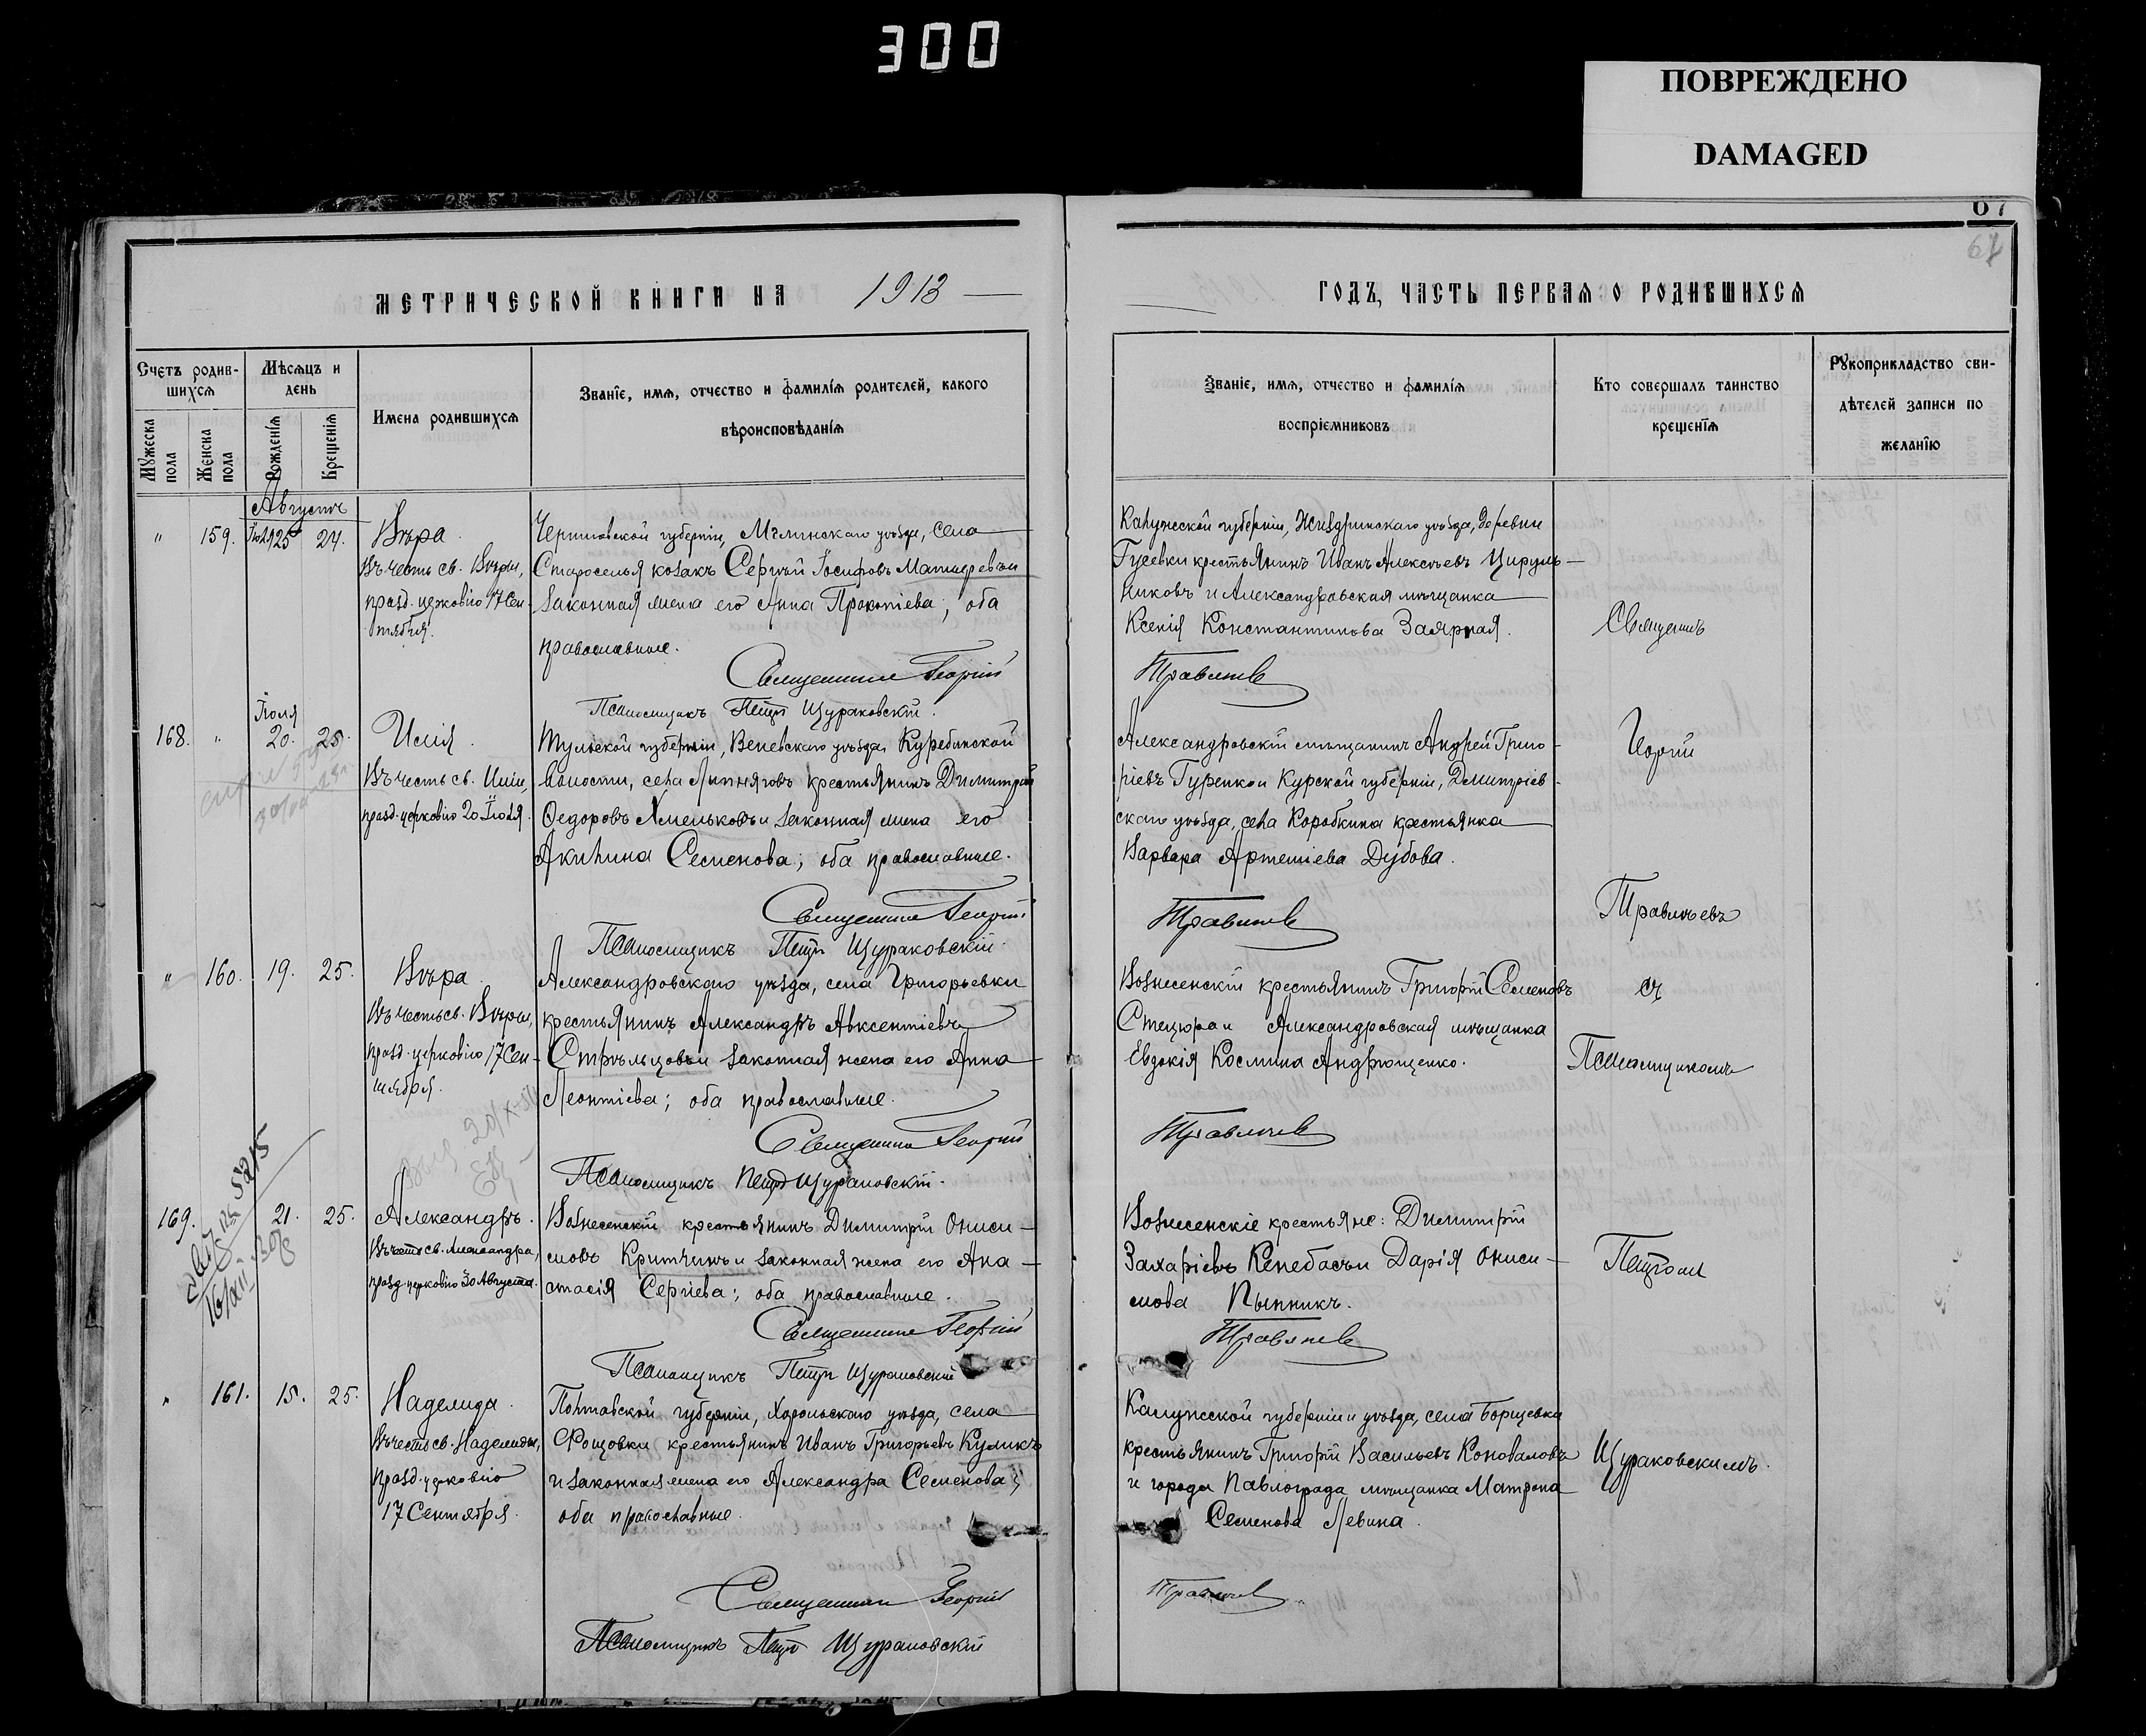 300
ПОВРЕЖДЕНО
DAMAGED
67
67
МЕТРИЧЕСКОЙ КНИГИ НА 1913
Счетъ родив-
шихся
Мѣсяцъ и
день
Мужеска
пола
Женска
пола
Рожденія
Крещенія
Имена родившихся
Званіе, имя, отчество и фамилія родителей, какого
вѣроисповѣданія
Августъ
" 159. Іюля 25 24. Вѣра.
Въ честь св. Вѣры,
празд. церковію 17 Сен-
тября.
Черниговской губерніи, Мглинскаго уѣзда, села
Староселья козакъ Сергѣй Іосифовъ и
законная жена его Анна Прокопіева; оба
православные.
Священникъ Георгій
Псаломщикъ Петръ Щураковскій.
Іюля
168. " 20. 25. Илія.
Въ честь св. Иліи,
празд. церковію 20 Іюля.
Тульской губерніи, Веневскаго уѣзда, Куребинской
волости, села Липняговъ крестьянинъ Димитрій
Ѳедоровъ Хмельковъ и законная жена его
Акилина Семенова; оба православные.
Священникъ Георгій
Псаломщикъ Петръ Щураковскій.
" 160. 19. 25. Вѣра.
Въ честь св. Вѣры,
празд. церковію 17 Сен-
тября.
Александровскаго уѣзда, села Григорьевки
крестьянинъ Александръ Авксентіевъ
Стрѣльцовъ и законная жена его Анна
Леонтіева; оба православные.
Священникъ Георгій
Псаломщикъ Петръ Щураковскій.
169. 21. 25. Александръ.
Въ честь св. Александра,
празд. церковію 30 Августа.
Вознесенскій крестьянинъ Димитрій Ониси-
мовъ и законная жена его Ана-
стасія Сергіева; оба православные.
Священникъ Георгій
Псаломщикъ Петръ Щураковскій
" 161. 15. 25. Надежда.
Въ честь св. Надежды,
празд. церковію
17 Сентября.
Полтавской губерніи, Хорольскаго уѣзда, села
крестьянинъ Иванъ Григорьевъ Куликъ
и законная жена его Александра Семенова;
оба православные.
Священникъ Георгій
Псаломщикъ Петръ Щураковскій
ГОДЪ, ЧАСТЬ ПЕРВАЯ О РОДИВШИХСЯ
Званіе, имя, отчество и фамилія
воспріемниковъ
Кто совершалъ таинство
крещенія
Рукоприкладство сви-
дѣтелей записи по
желанію
Калужской губерніи, Жиздринскаго уѣзда, деревни
Гусевки крестьянинъ Иванъ Алексѣевъ Цируль-
никовъ и Александровская мѣщанка
Ксенія Константинова Заярная.
Травлѣевъ
Александровскій мѣщанинъ Андрей Григо-
ріевъ Гуренко и Курской губерніи, Дмитріев-
скаго уѣзда, села Коробкина крестьянка
Варвара Артеміева Дубова.
Травлѣевъ
Вознесенскій крестьянинъ Григорій Семеновъ
Стецюра и Александровская мѣщанка
Евдокія Космина Андрющенко.
Травлѣевъ
Вознесенскіе крестьяне: Димитрій
Захаріевъ Кенебасъ и Дарія Ониси-
мова
Травлѣевъ
Калужской губерніи и уѣзда, села Борщевка
крестьянинъ Григорій Васильевъ Коноваловъ
и города Павлограда мѣщанка Матрона
Семенова Левина.
Травлѣевъ
Священникъ
Георгій
Травлѣевъ
съ
Псаломщикомъ
Петромъ
Щураковскимъ.